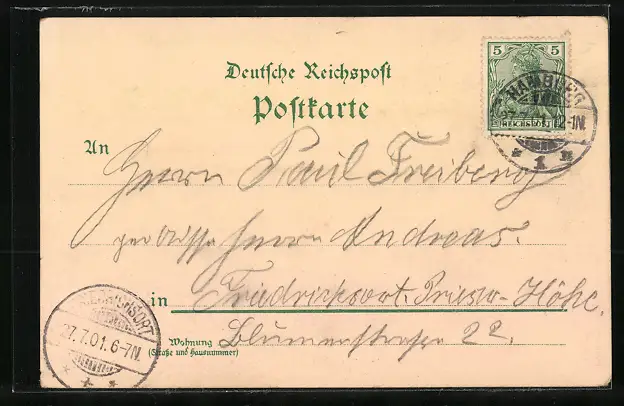 Deutsche Reichspost
Postkarte
5
REICHSPOST
HAMBURG
1
An
Herrn Paul Freiberg
Herrn Andreas.
in Friedrichsort. Prieser-Höhe.
Wohnung
(Straße und Hausnummer)
Blumenstrasse 22.
FRIEDRICHSORT
27.7.01.6-7N.